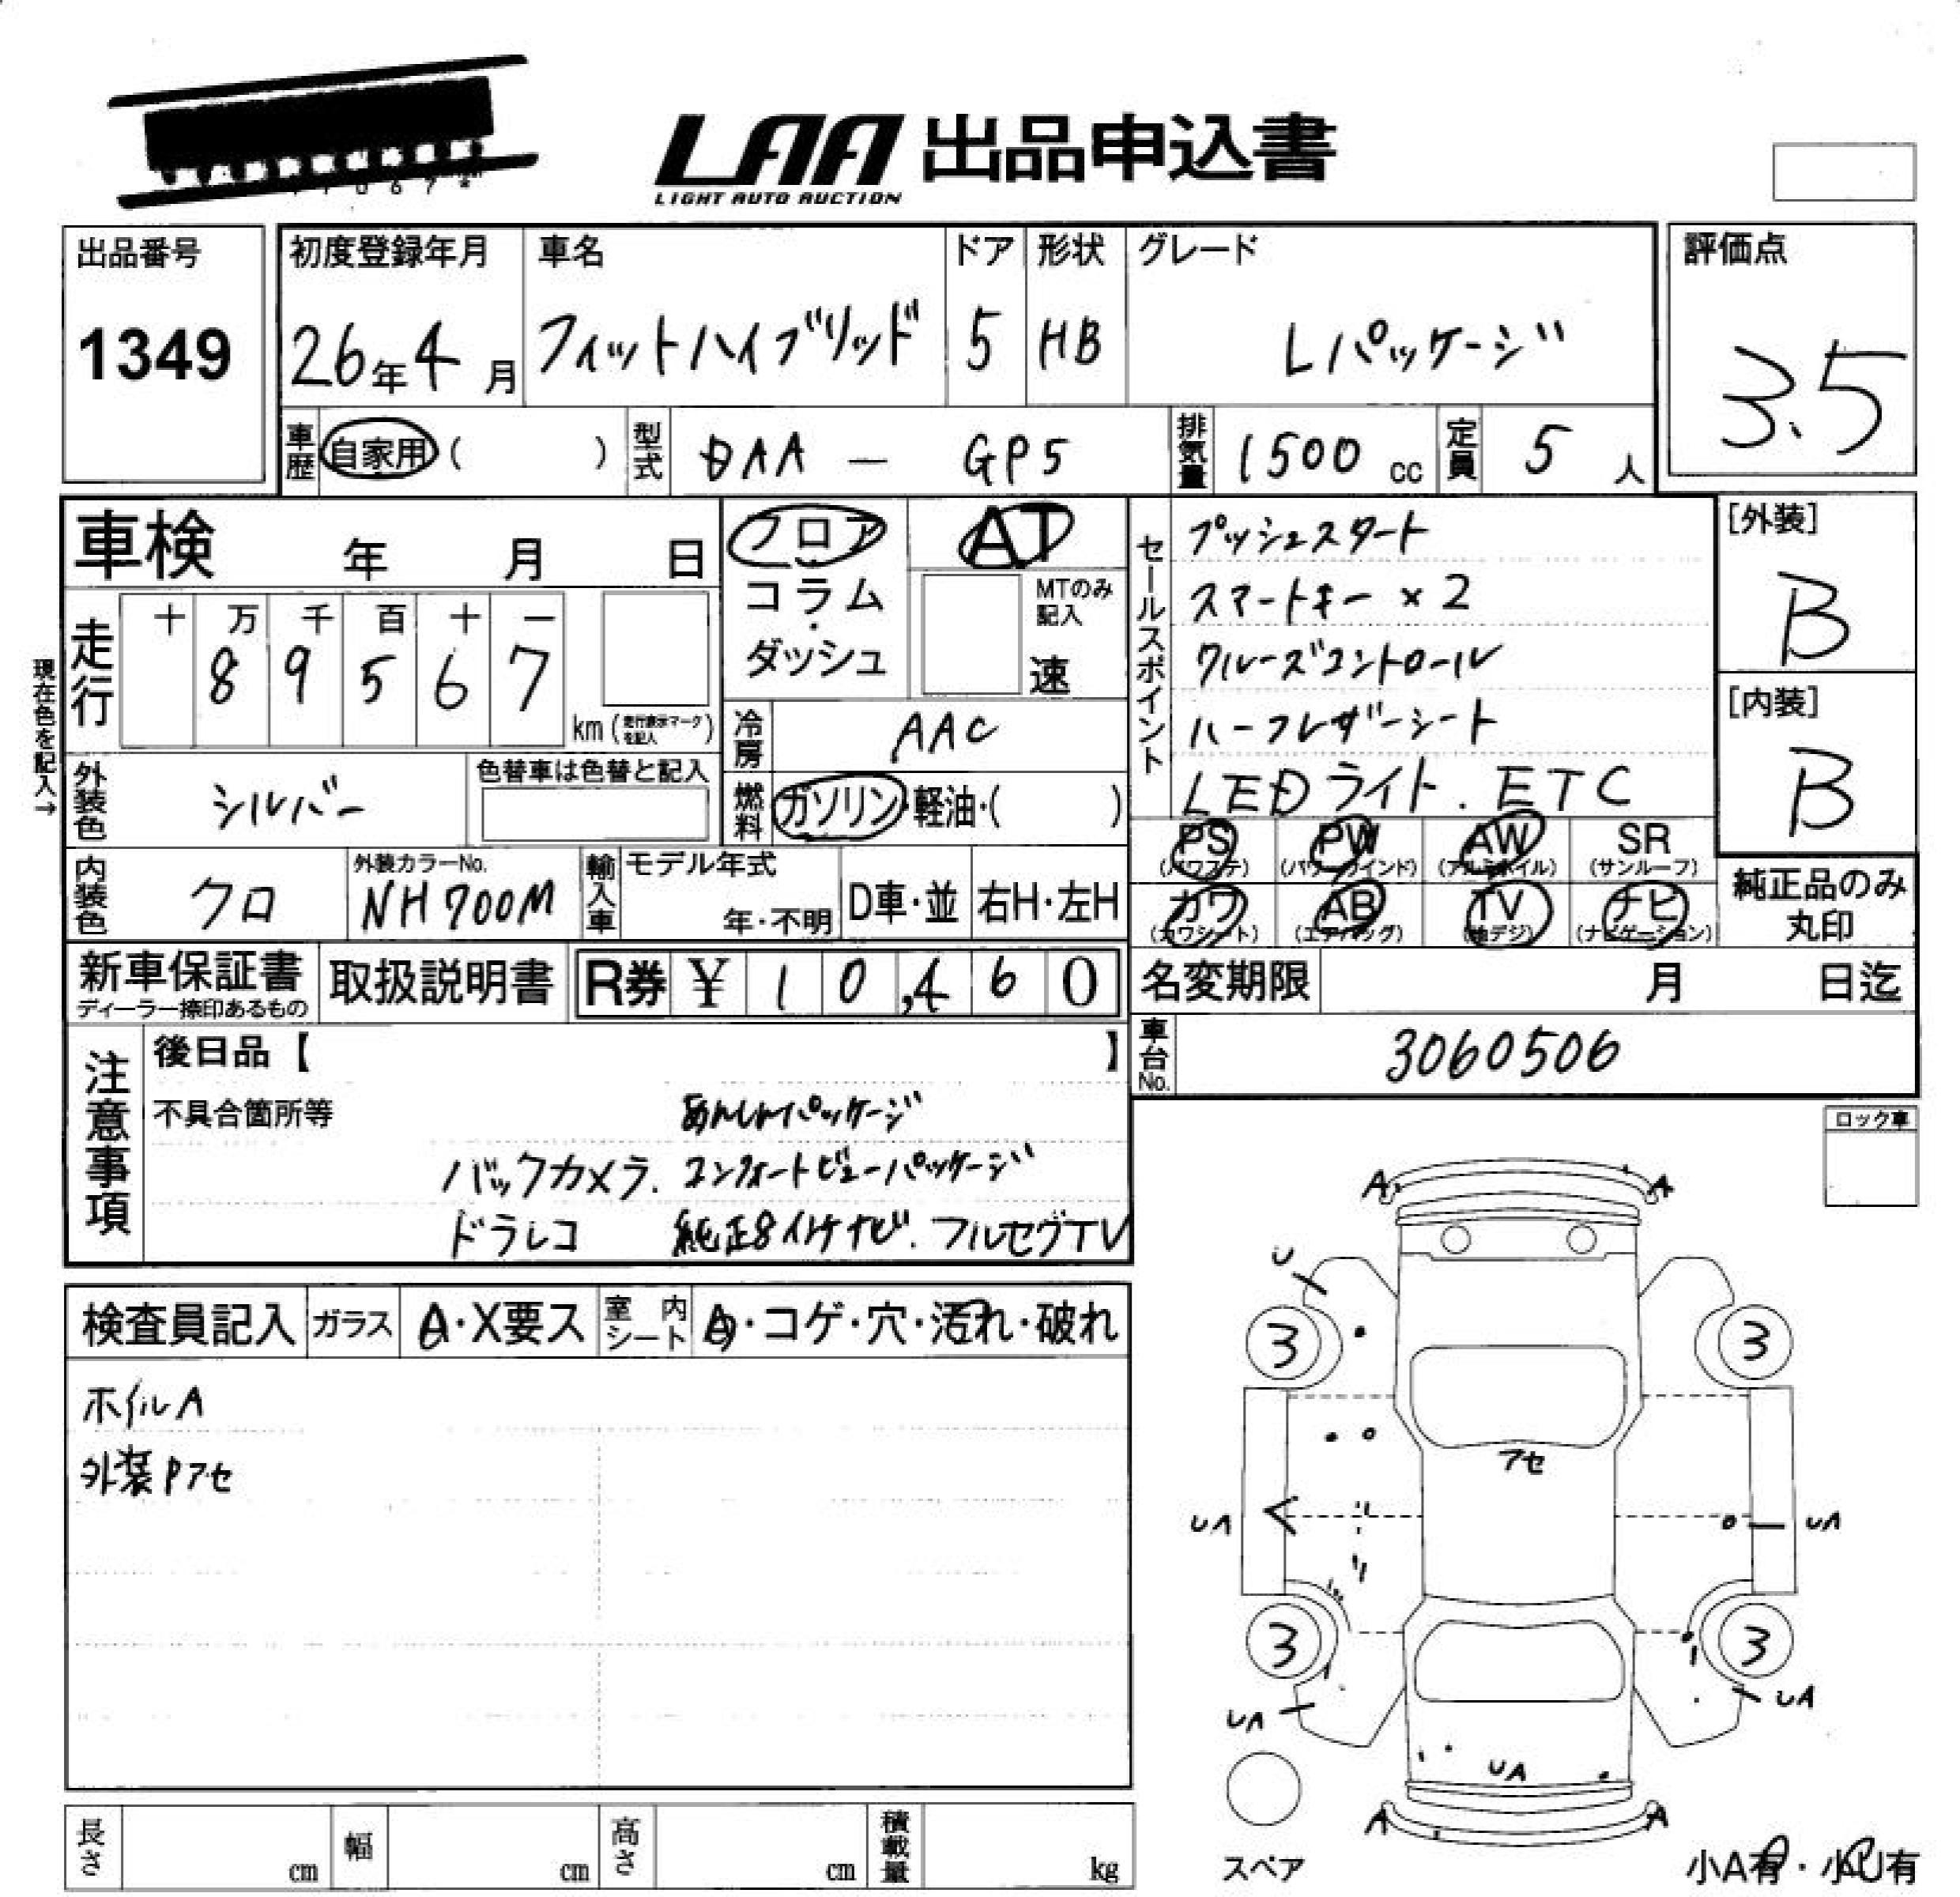 LAA 出品申込書
LIGHT AUTO AUCTION
出品番号
1349
初度登録年月
26年4月
車名
フィットハイブリッド
ドア
5
形状
HB
グレード
Lパッケージ
評価点
3.5
車歴 自家用 ( )
型式 DAA - GP5
排気量 1500 cc
定員 5 人
車検 年 月 日
フロア・コラム・ダッシュ
AT
MTのみ記入
速
現在色を記入→
走行
十 万 千 百 十 一
8 9 5 6 7
km (走行表示マークを記入)
冷房 AAC
外装色 シルバー
色替車は色替と記入
燃料 ガソリン・軽油・( )
内装色 クロ
外装カラーNo.
NH700M
輸入車
モデル年式
年・不明
D車・並
右H・左H
セールスポイント
プッシュスタート
スマートキー ×2
クルーズコントロール
ハーフレザーシート
LEDライト. ETC
[外装]
B
[内装]
B
PS (パワステ)
PW (パワーウインド)
AW (アルミホイル)
SR (サンルーフ)
カワ (カワシート)
AB (エアバッグ)
TV (地デジ)
ナビ (ナビゲーション)
純正品のみ丸印
新車保証書
ディーラー捺印あるもの
取扱説明書
R券 ¥ 10,460
名変期限 月 日迄
車台No. 3060506
注意事項
後日品【 】
不具合箇所等 あんしんパッケージ
バックカメラ. コンフォートビューパッケージ
ドラレコ 純正8インチナビ. フルセグTV
ロック車
検査員記入
ガラス A・X要ス
室内シート A・コゲ・穴・汚れ・破れ
ホイルA
外装Pアセ
A A
U
3 3
アセ
UA UA
3 3
UA UA
UA
A A
スペア
小A有・小U有
長さ cm
幅 cm
高さ cm
積載量 kg